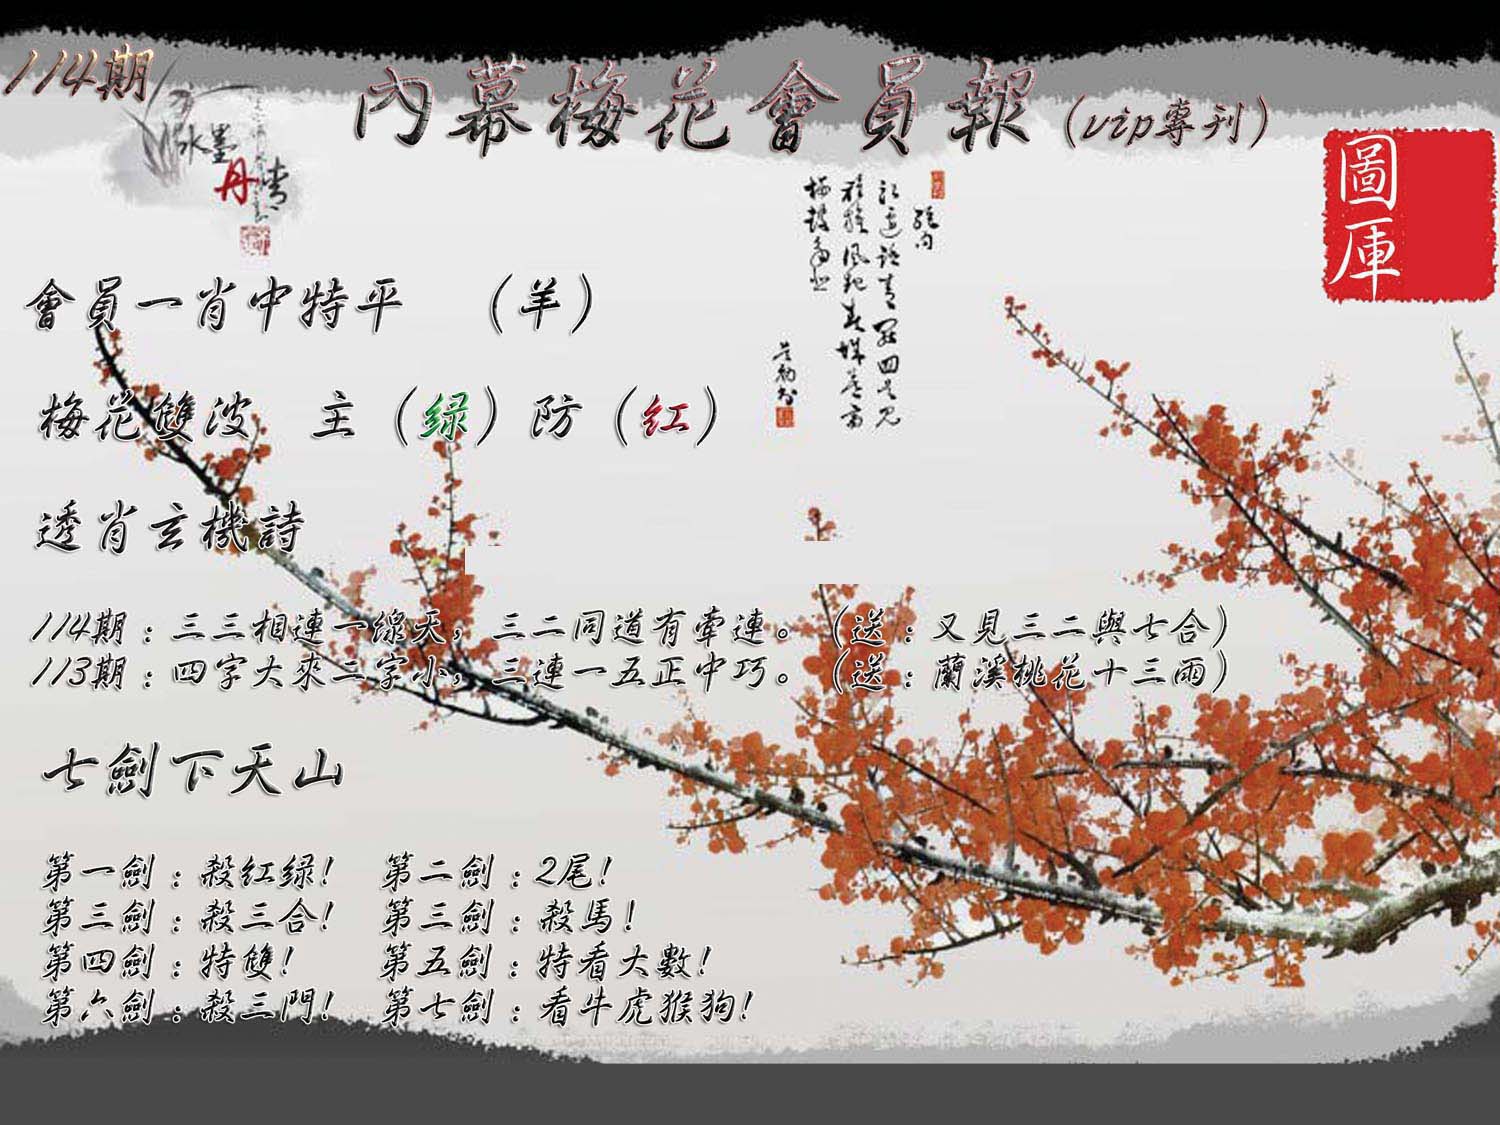 114期
內幕梅花會員報(vip專刊)
水墨
丹情
圖庫
會員一肖中特平 (羊)
梅花雙波 主(绿)防(红)
透肖玄機詩
114期:三三相連一線天,三二同道有牽連。(送:又見三二與七合)
113期:四字大來二字小,三連一五正中巧。(送:蘭溪桃花十三雨)
七劍下天山
第一劍:殺红绿! 第二劍:2尾!
第三劍:殺三合! 第三劍:殺馬!
第四劍:特雙! 第五劍:特看大數!
第六劍:殺三門! 第七劍:看牛虎猴狗!